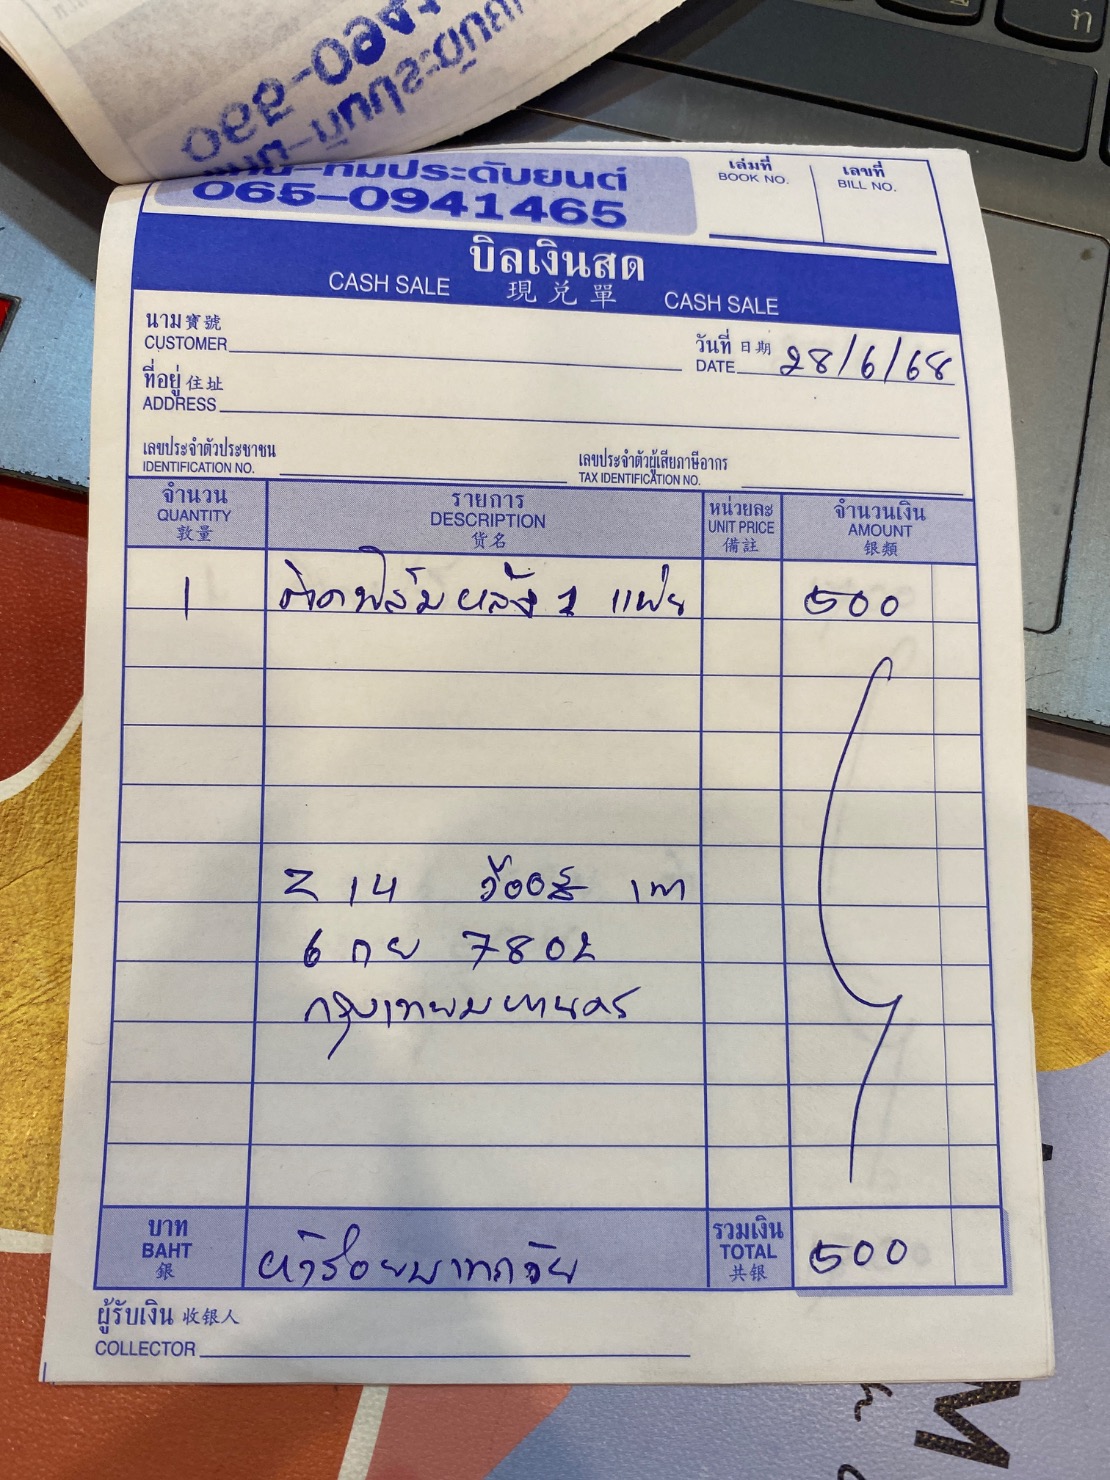 ทีมประดับยนต์
065-0941465
เล่มที่
BOOK NO.
เลขที่
BILL NO.
บิลเงินสด
CASH SALE 現兑單 CASH SALE
นาม寳號
CUSTOMER
วันที่ 日期
DATE 28/6/68
ที่อยู่ 住址
ADDRESS
เลขประจำตัวประชาชน
IDENTIFICATION NO.
เลขประจำตัวผู้เสียภาษีอากร
TAX IDENTIFICATION NO.
จำนวน
QUANTITY
数量
รายการ
DESCRIPTION
货名
หน่วยละ
UNIT PRICE
備註
จำนวนเงิน
AMOUNT
银類
1 ติดฟิล์มหลัง 1 แผ่น 500
Z 14 เทา
6 กย 7802
กรุงเทพมหานคร
บาท
BAHT
銀
ห้าร้อยบาทถ้วน
รวมเงิน
TOTAL
共银
500
ผู้รับเงิน 收银人
COLLECTOR